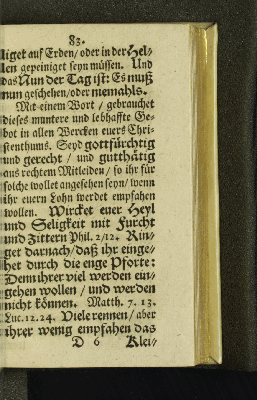 83.
liget auf Erden/ oder in der Hel-
len gepeiniget seyn müssen. Und
das Nun der Tag ist: Es muß
nun geschehen/ oder niemahls.
Mit einem Wort / gebrauchet
dieses muntere und lebhaffte Ge-
bot in allen Wercken euers Chri-
stenthums. Seyd gottsfürchtig
und gerecht / und gutthätig
aus rechtem Mitleiden/ so ihr für
solche wollet angesehen seyn/ wenn
ihr euern Lohn werdet empfahen
wollen. Wircket euer Heyl
und Seligkeit mit Furcht
und Zittern Phil. 2/12. Rin-
get darnach/ daß ihr einge-
het durch die enge Pforte:
Denn ihrer viel werden ein-
gehen wollen / und werden
nicht können. Matth. 7. 13.
Luc. 12. 24. Viele rennen/ aber
ihrer wenig empfahen das
D 6 Klei-